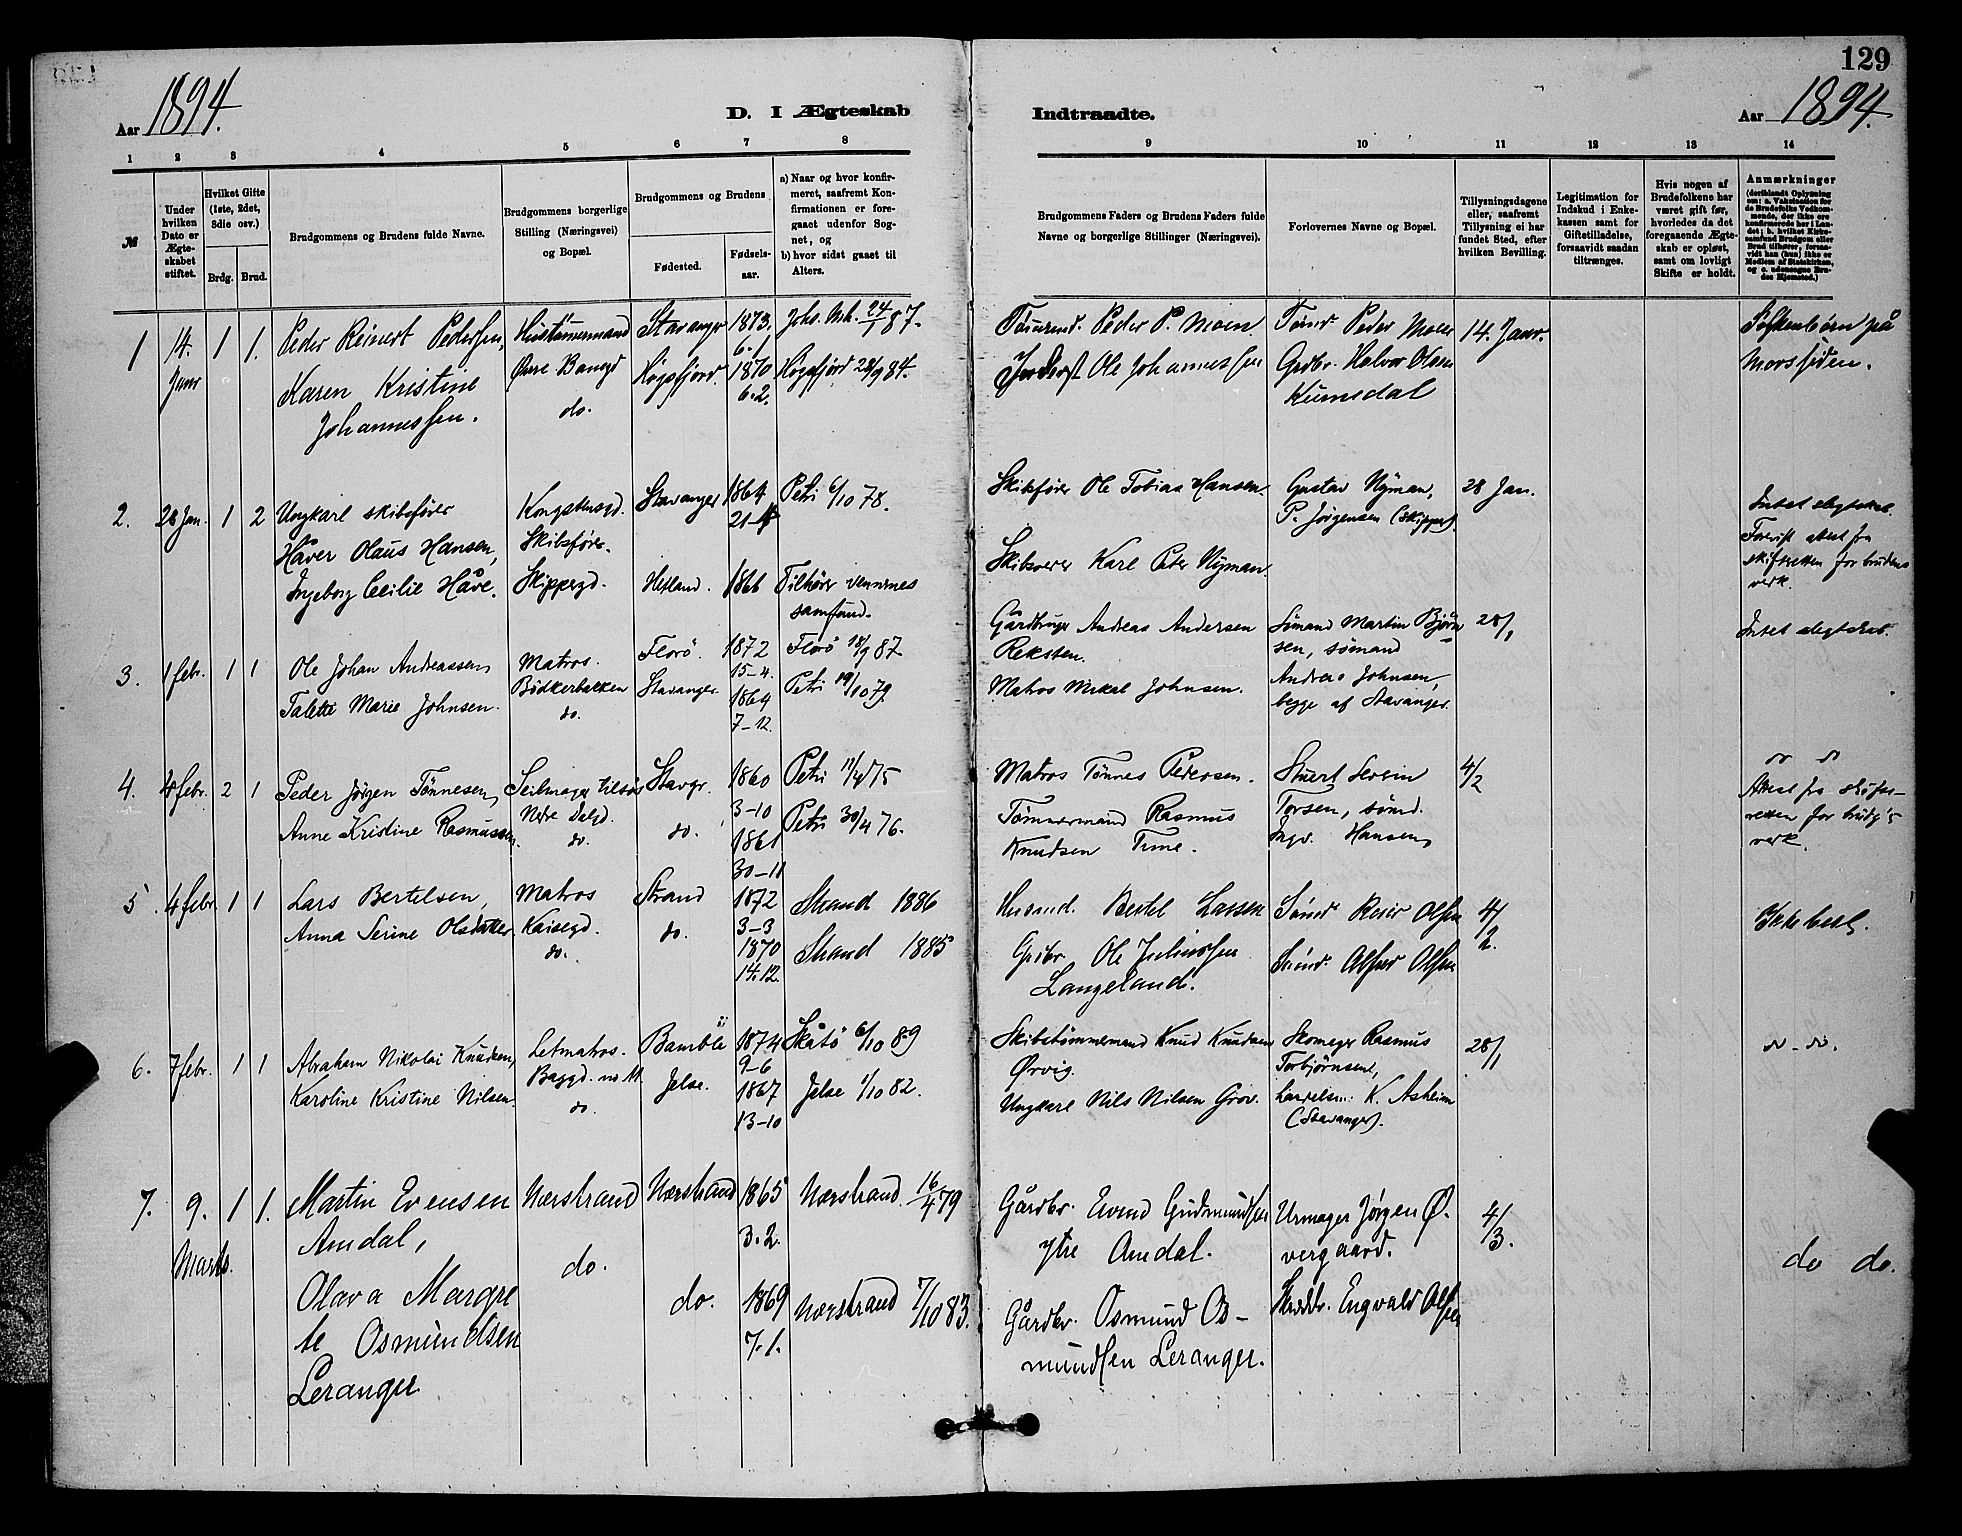 129
Aar 1894.
D. I Ægteskab Indtraadte.
Aar 1894.
1 2 3 4 5 6 7 8 9 10 11 12 13 14
№
Under hvilken Dato er Ægteskabet stiftet.
Hvilket Gifte (1ste, 2det, 3die osv.)
Brdg. Brud.
Brudgommens og Brudens fulde Navne.
Brudgommens borgerlige Stilling (Næringsvei) og Bopæl.
Brudgommens og Brudens
Fødested.
Fødselsaar.
a) Naar og hvor konfirmeret, saafremt Konfirmationen er foregaaet udenfor Sognet, og
b) hvor sidst gaaet til Alters.
Brudgommens Faders og Brudens Faders fulde Navne og borgerlige Stillinger (Næringsvei).
Forlovernes Navne og Bopæl.
Tillysningsdagene eller, saafremt Tillysning ei har fundet Sted, efter hvilken Bevilling.
Legitimation for Indskud i Enkekassen samt for Giftetilladelse, forsaavidt saadan tiltrænges.
Hvis nogen af Brudefolkene har været gift før, hvorledes da det foregaaende Ægteskab er opløst, samt om lovligt Skifte er holdt.
Anmærkninger
1 14. Janr 1 1.
Peder Reinert Pedersen,
Karen Kristine
Johannessen.
Øvre Bansgd
do.
Stavanger
Høgsfjord.
1873.
6.1
1870
6.2.
Johs. Mk. 24/1 87.
Høgsfjord 28/9 84.
Peder P. Moen
Ole Johannessen
Peder Moen
Grdbr. Halvor Olsen
14. Janr.
Søskenbørn på
Morssiden.
2. 28 Jan. 1 2
Ungkarl skibsfører
Håver Olaus Hansen,
Ingeborg Cecilie Håve.
Kongstensgd.
Skibsfører.
Skippergd.
Stavanger
Hetland.
1864
1866
Petri 6/10 78.
Tilhører vennernes
samfund.
Skibsfører Ole Tobias Hansen.
Karl Peter Nyman.
Gustav Nyman,
P. Jørgensen (skipper).
28 Jan.
Intet slegtskab.
Forevist attest fra
skifteretten for brudens
verk.
3. 1 febr. 1 1
Ole Johan Andreassen,
Talette Marie Johnsen.
Matros.
Bødkerbakken
do.
Florø.
Stavanger.
1872
15-4.
1864
7-12.
Florø 18/9 87
Petri 19/10 79.
Gårdbruger Andreas Andersen
Reksten.
Matros Mikal Johnsen.
Sømand Martin Bjørn
sen, sømand
Andreas Johnsen,
begge af Stavanger.
28/1
Intet slegtskab.
4. 4 febr. 2 1
Peder Jørgen Tønnesen,
Anne Kristine Rasmussen.
Seilmager tilsøs
Nedre Dalgd.
do.
Stavgr.
do.
1860
3-10
1861
30-11
Petri 11/4 75
Petri 30/4 76.
Matros Tønnes Pedersen.
Tømmermand Rasmus
Knudsen Time.
Torsen, sømd.
Ingv. Hansen,
4/2
Attest fra skifte-
retten for brudg's
verk.
5. 4 febr 1 1
Lars Bertelsen,
Anna Serine Olsdatter.
Matros
Kaisegd.
do.
Strand
do.
1872
3-3
1870
14.12.
Strand 1886
Strand 1885
Husmd. Bertel Larsen
Grdbr. Ole Juliussen
Langeland.
Sømd. Reier Olsen
Sømd. Alfred Olsen
4/2.
6. 7 febr. 1 1
Abraham Nikolai Knudsen,
Karoline Kristine Nilsen.
Letmatros.
do
Bamble
Jelse.
1874
9-6
1867
13-10
Skåtø 6/10 89
Jelse 1/10 82.
Skibstømmermand Knud Knudsen
Ørvig.
Ungkarl Nils Nilsen Grov.
Skomager Rasmus
Torbjørnsen,
K. Asheim
(Stavanger).
28/1
do - do.
7. 9. Marts. 1 1.
Martin Evensen
Amdal,
Olava Margre
te Osmundsen
Leranger
Nærstrand
do.
Nærstrand
do.
1865
3.2.
1869
7.1.
Nærstrand 16/4 79
Nærstrand 7/10 83.
Gårdbr. Eivind Gudmundsen
ytre Amdal.
Gårdbr. Osmund Os-
mundsen Leranger.
Urmager Jørgen Ø-
vergaard.
Skrædr. Engvald Olsen
4/3.
do do.